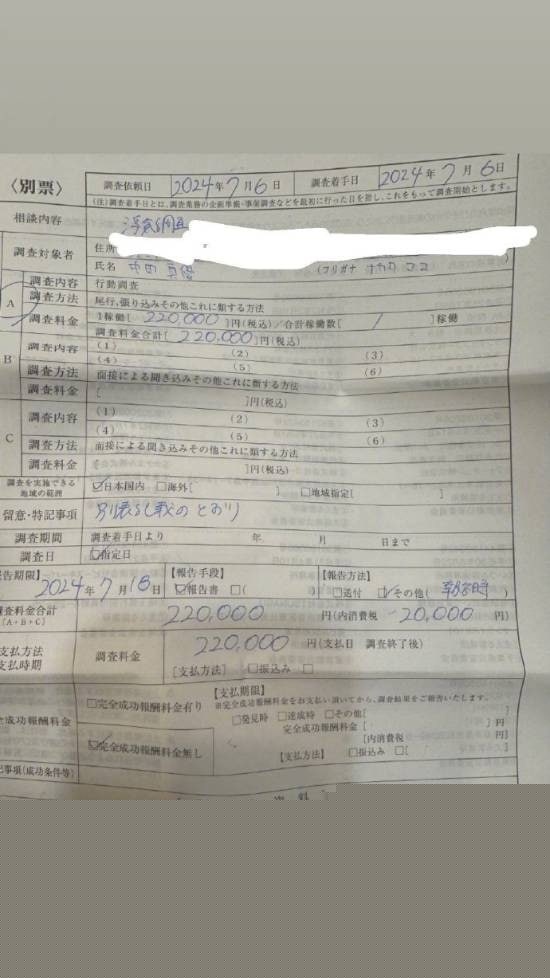 〈別票〉
調査依頼日 2024年7月6日 調査着手日 2024年7月6日
(注)調査着手日とは、調査業務の企画準備・事前調査などを最初に行った日を指し、これをもって調査開始とします。
相談内容
調査対象者 住所
氏名 (フリガナ
A 調査内容 行動調査
調査方法 尾行、張り込みその他これに類する方法
調査料金 1稼働[220,000]円(税込)/合計稼働数[ / ]稼働
調査料金合計[220,000]円(税込)
B 調査内容 (1) (2) (3)
(4) (5) (6)
調査方法 面接による聞き込みその他これに類する方法
調査料金 [ ]円(税込)
C 調査内容 (1) (2) (3)
(4) (5) (6)
調査方法 面接による聞き込みその他これに類する方法
調査料金 ]円(税込)
調査を実施できる地域の範囲 ☑日本国内 □海外[ ] □地域指定[ ]
留意・特記事項 別表のとおり
調査期間 調査着手日より 年 月 日まで
調査日 ☑指定日
報告期限】 2024年7月18日 【報告手段】 ☑報告書 □( ) 【報告方法】 □送付 ☑その他(
調査料金合計 [A+B+C] 220,000 円(内消費税 20,000 円)
支払方法 支払時期 調査料金 220,000 円(支払日 調査終了後)
[支払方法] □振込み □
完全成功報酬料金 □完全成功報酬料金有り 【支払期限】
※完全成功報酬料金をお支払い頂いてから、調査結果をご報告いたします。
□発見時 □達成時 □その他[ ]
完全成功報酬料金[ ]円
[内消費税 円]
☑完全成功報酬料金無し 【支払方法】 □振込み □[ ]
記事項(成功条件等)